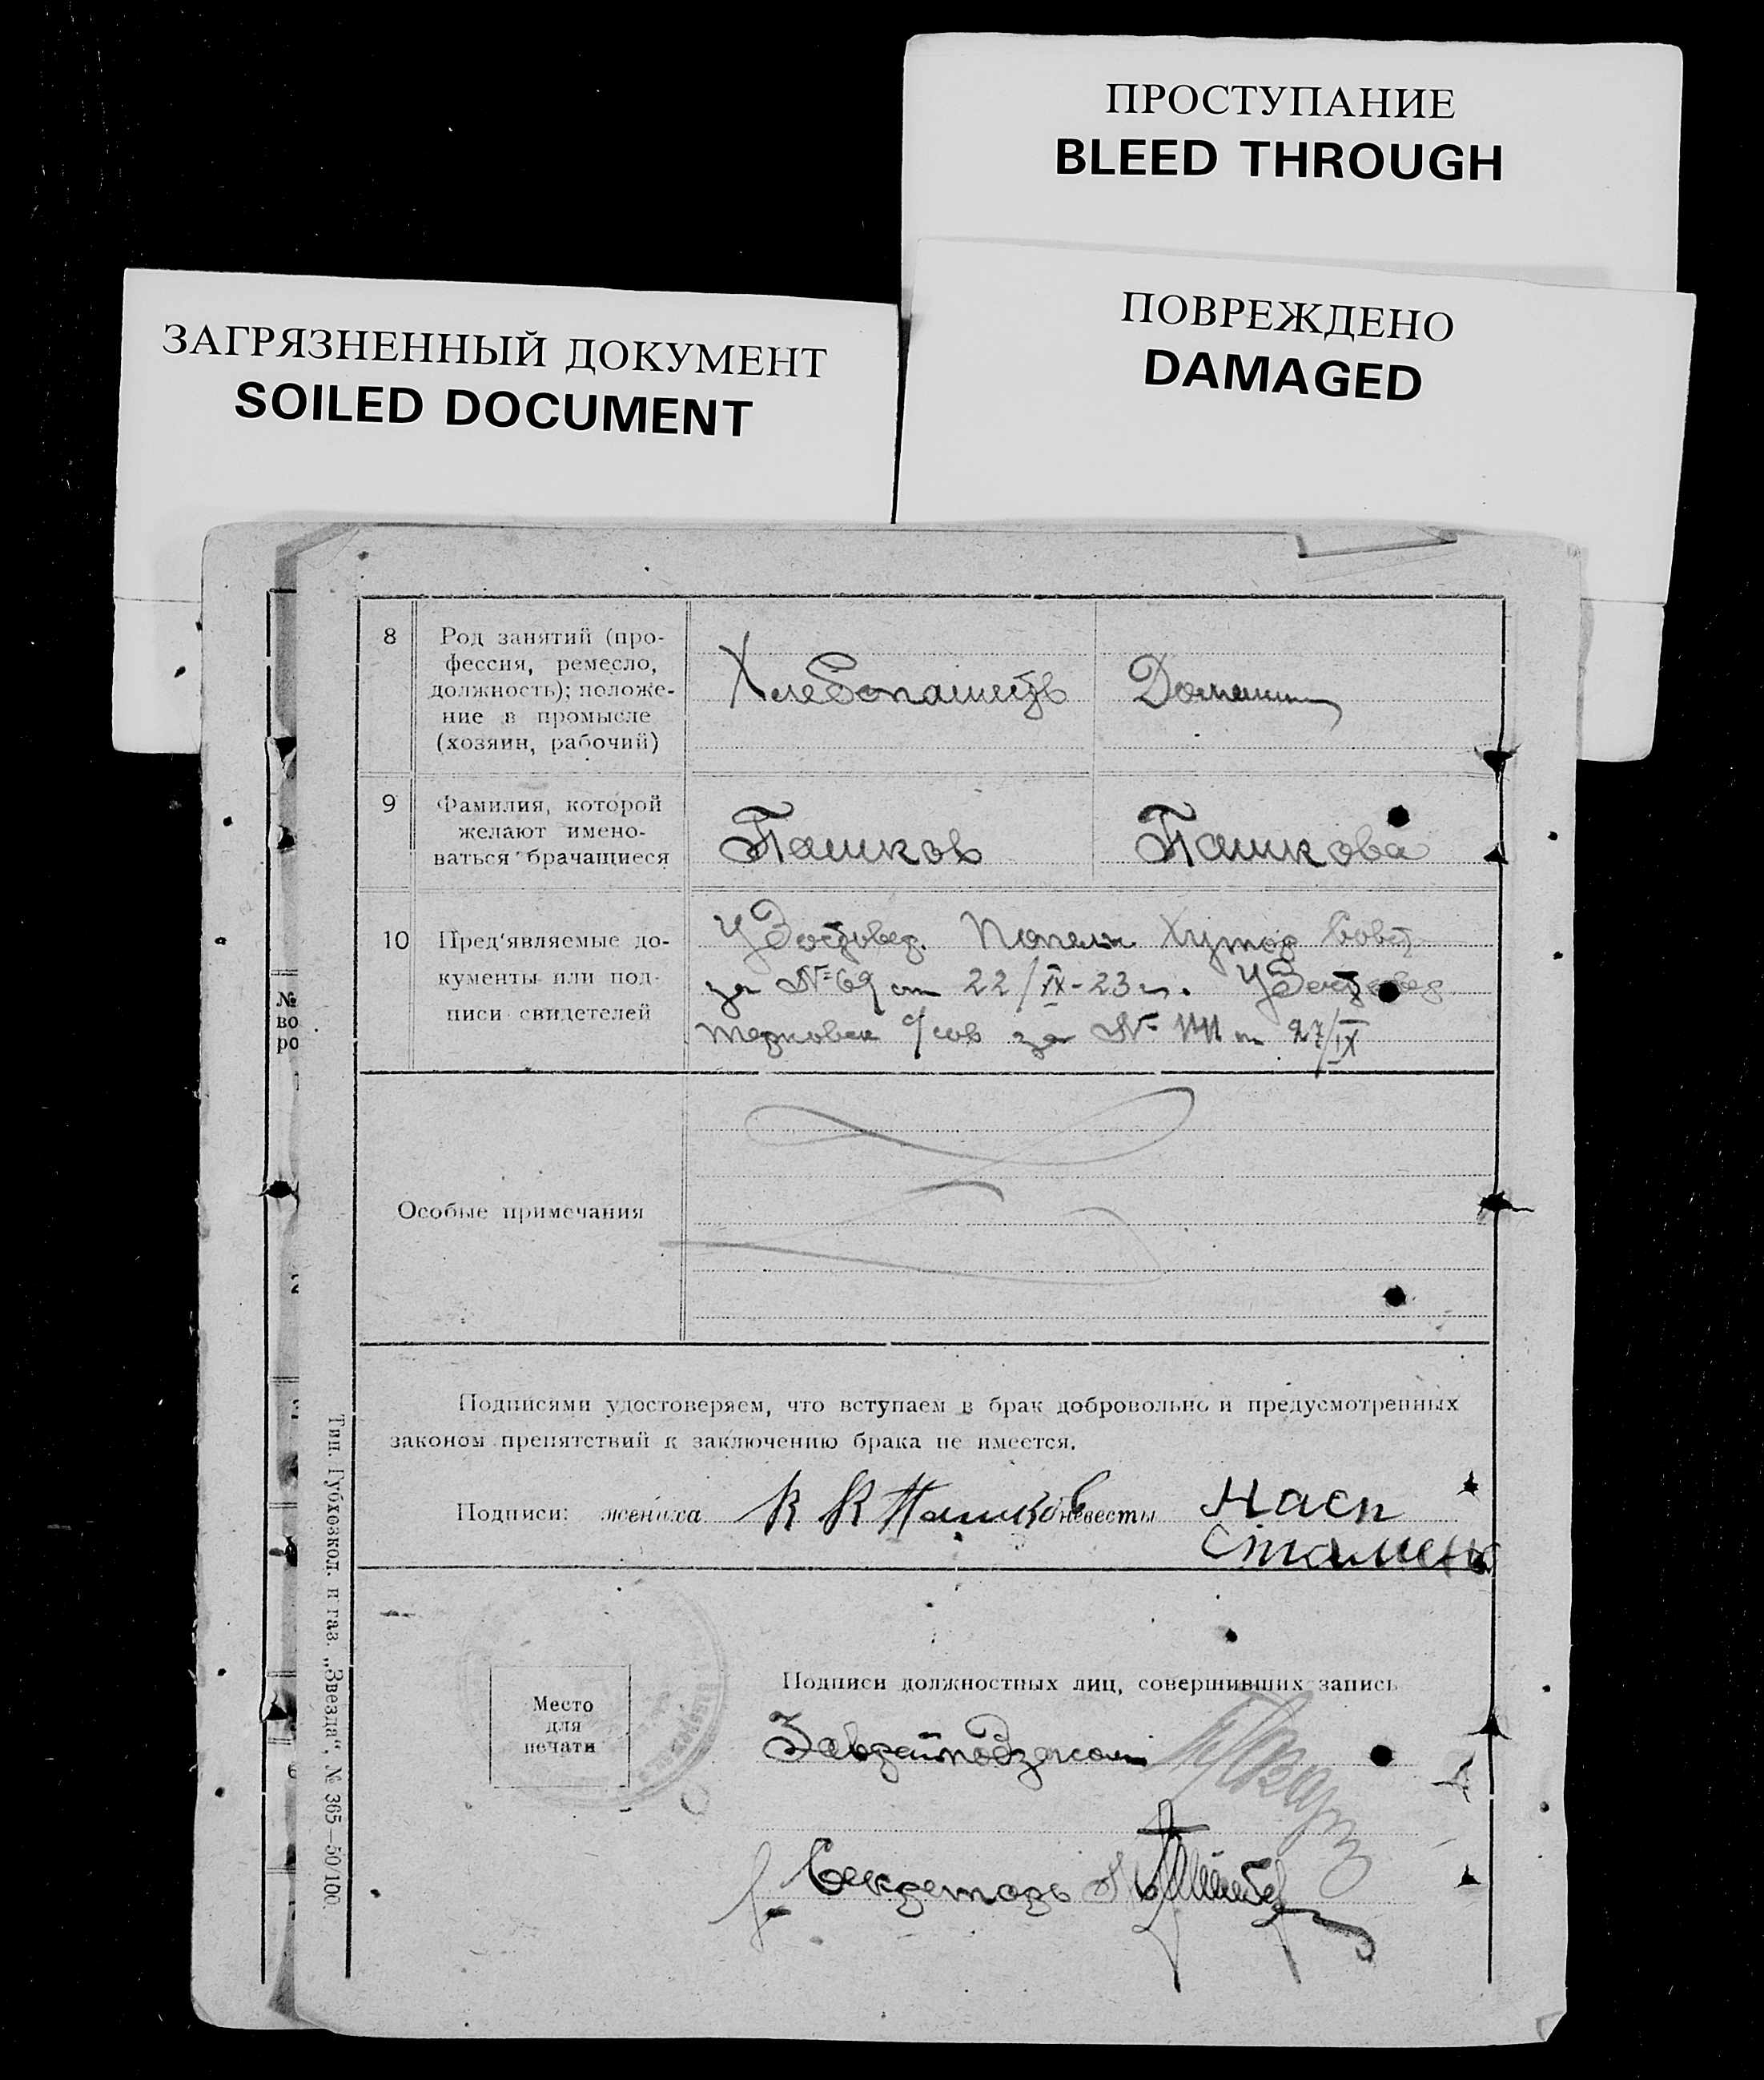 ПРОСТУПАНИЕ
BLEED THROUGH
ПОВРЕЖДЕНО
DAMAGED
ЗАГРЯЗНЕННЫЙ ДОКУМЕНТ
SOILED DOCUMENT
8
Род занятий (про-
фессия, ремесло,
должность); положе-
ние в промысле
(хозяин, рабочий)
Хлебопашеств
Домашн
9
Фамилия, которой
желают имено-
ваться брачащиеся
Пашков
Пашкова
10
Пред'являемые до-
кументы или под-
писи свидетелей
Удостовер. Хутор Совет
за № 69 от 22/IX-23 г. Удостовер
Терновск с/сов за № от 27/IX
Особые примечания
Подписями удостоверяем, что вступаем в брак добровольно и предусмотренных
законом препятствий к заключению брака не имеется.
Подписи: жениха К К Пашков невесты Насп
№
во
ро
Место
для
печати
Подписи должностных лиц, совершивших запись
Секретарь
Тип. Губхозкол. и газ. „Звезда“, № 365—50/100.